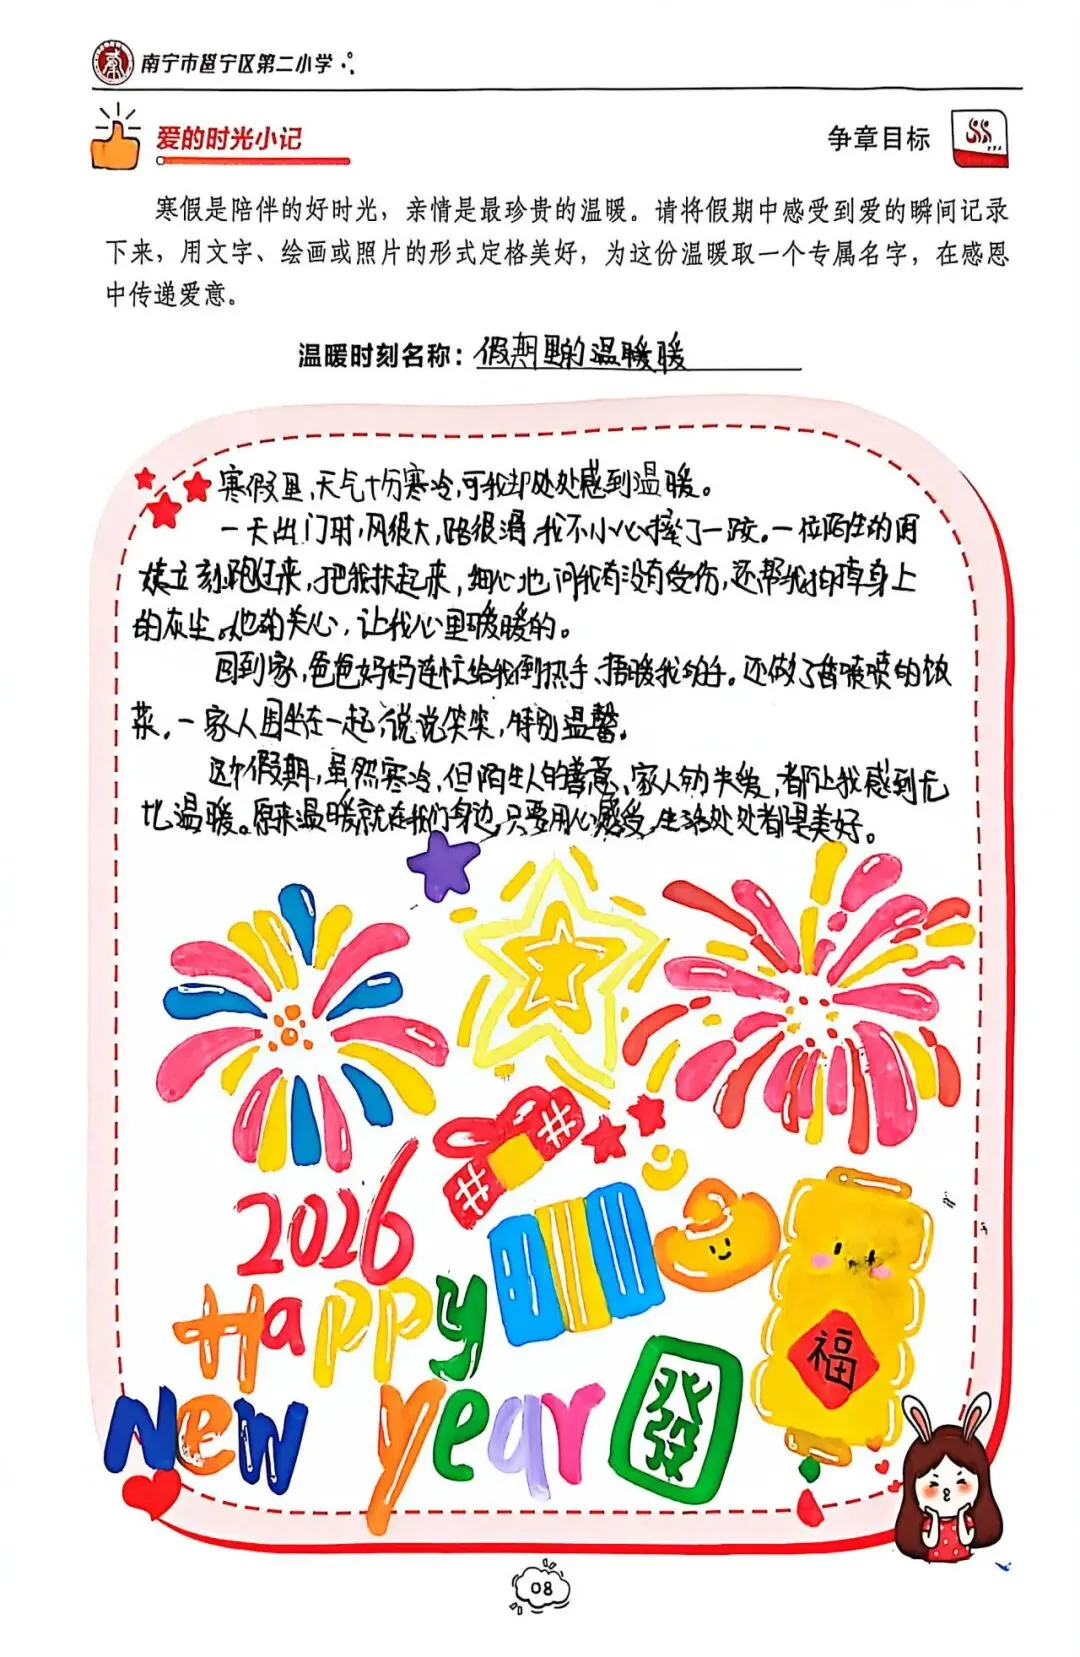 南宁市邕宁区第二小学
爱的时光小记
争章目标
寒假是陪伴的好时光，亲情是最珍贵的温暖。请将假期中感受到爱的瞬间记录
下来，用文字、绘画或照片的形式定格美好，为这份温暖取一个专属名字，在感恩
中传递爱意。
温暖时刻名称：假期里的温暖暖
寒假里，天气十分寒冷，可我却处处感到温暖。
一天出门时，风很大，路很滑，我不小心摔了一跤。一位陌生的阿
姨立刻跑过来，把我扶起来，细心地问我有没有受伤，还帮我拍掉身上
的灰尘。她的关心，让我心里暖暖的。
回到家，爸爸妈妈连忙给我倒热手、捂暖我的手。还做了香喷喷的饭
菜。一家人围坐在一起，说说笑笑，特别温馨。
这个假期，虽然寒冷，但陌生人的善意、家人的关爱，都让我感到无
比温暖。原来温暖就在我们身边，只要用心感受，生活处处都是美好。
2026
Happy
New year
發
福
08